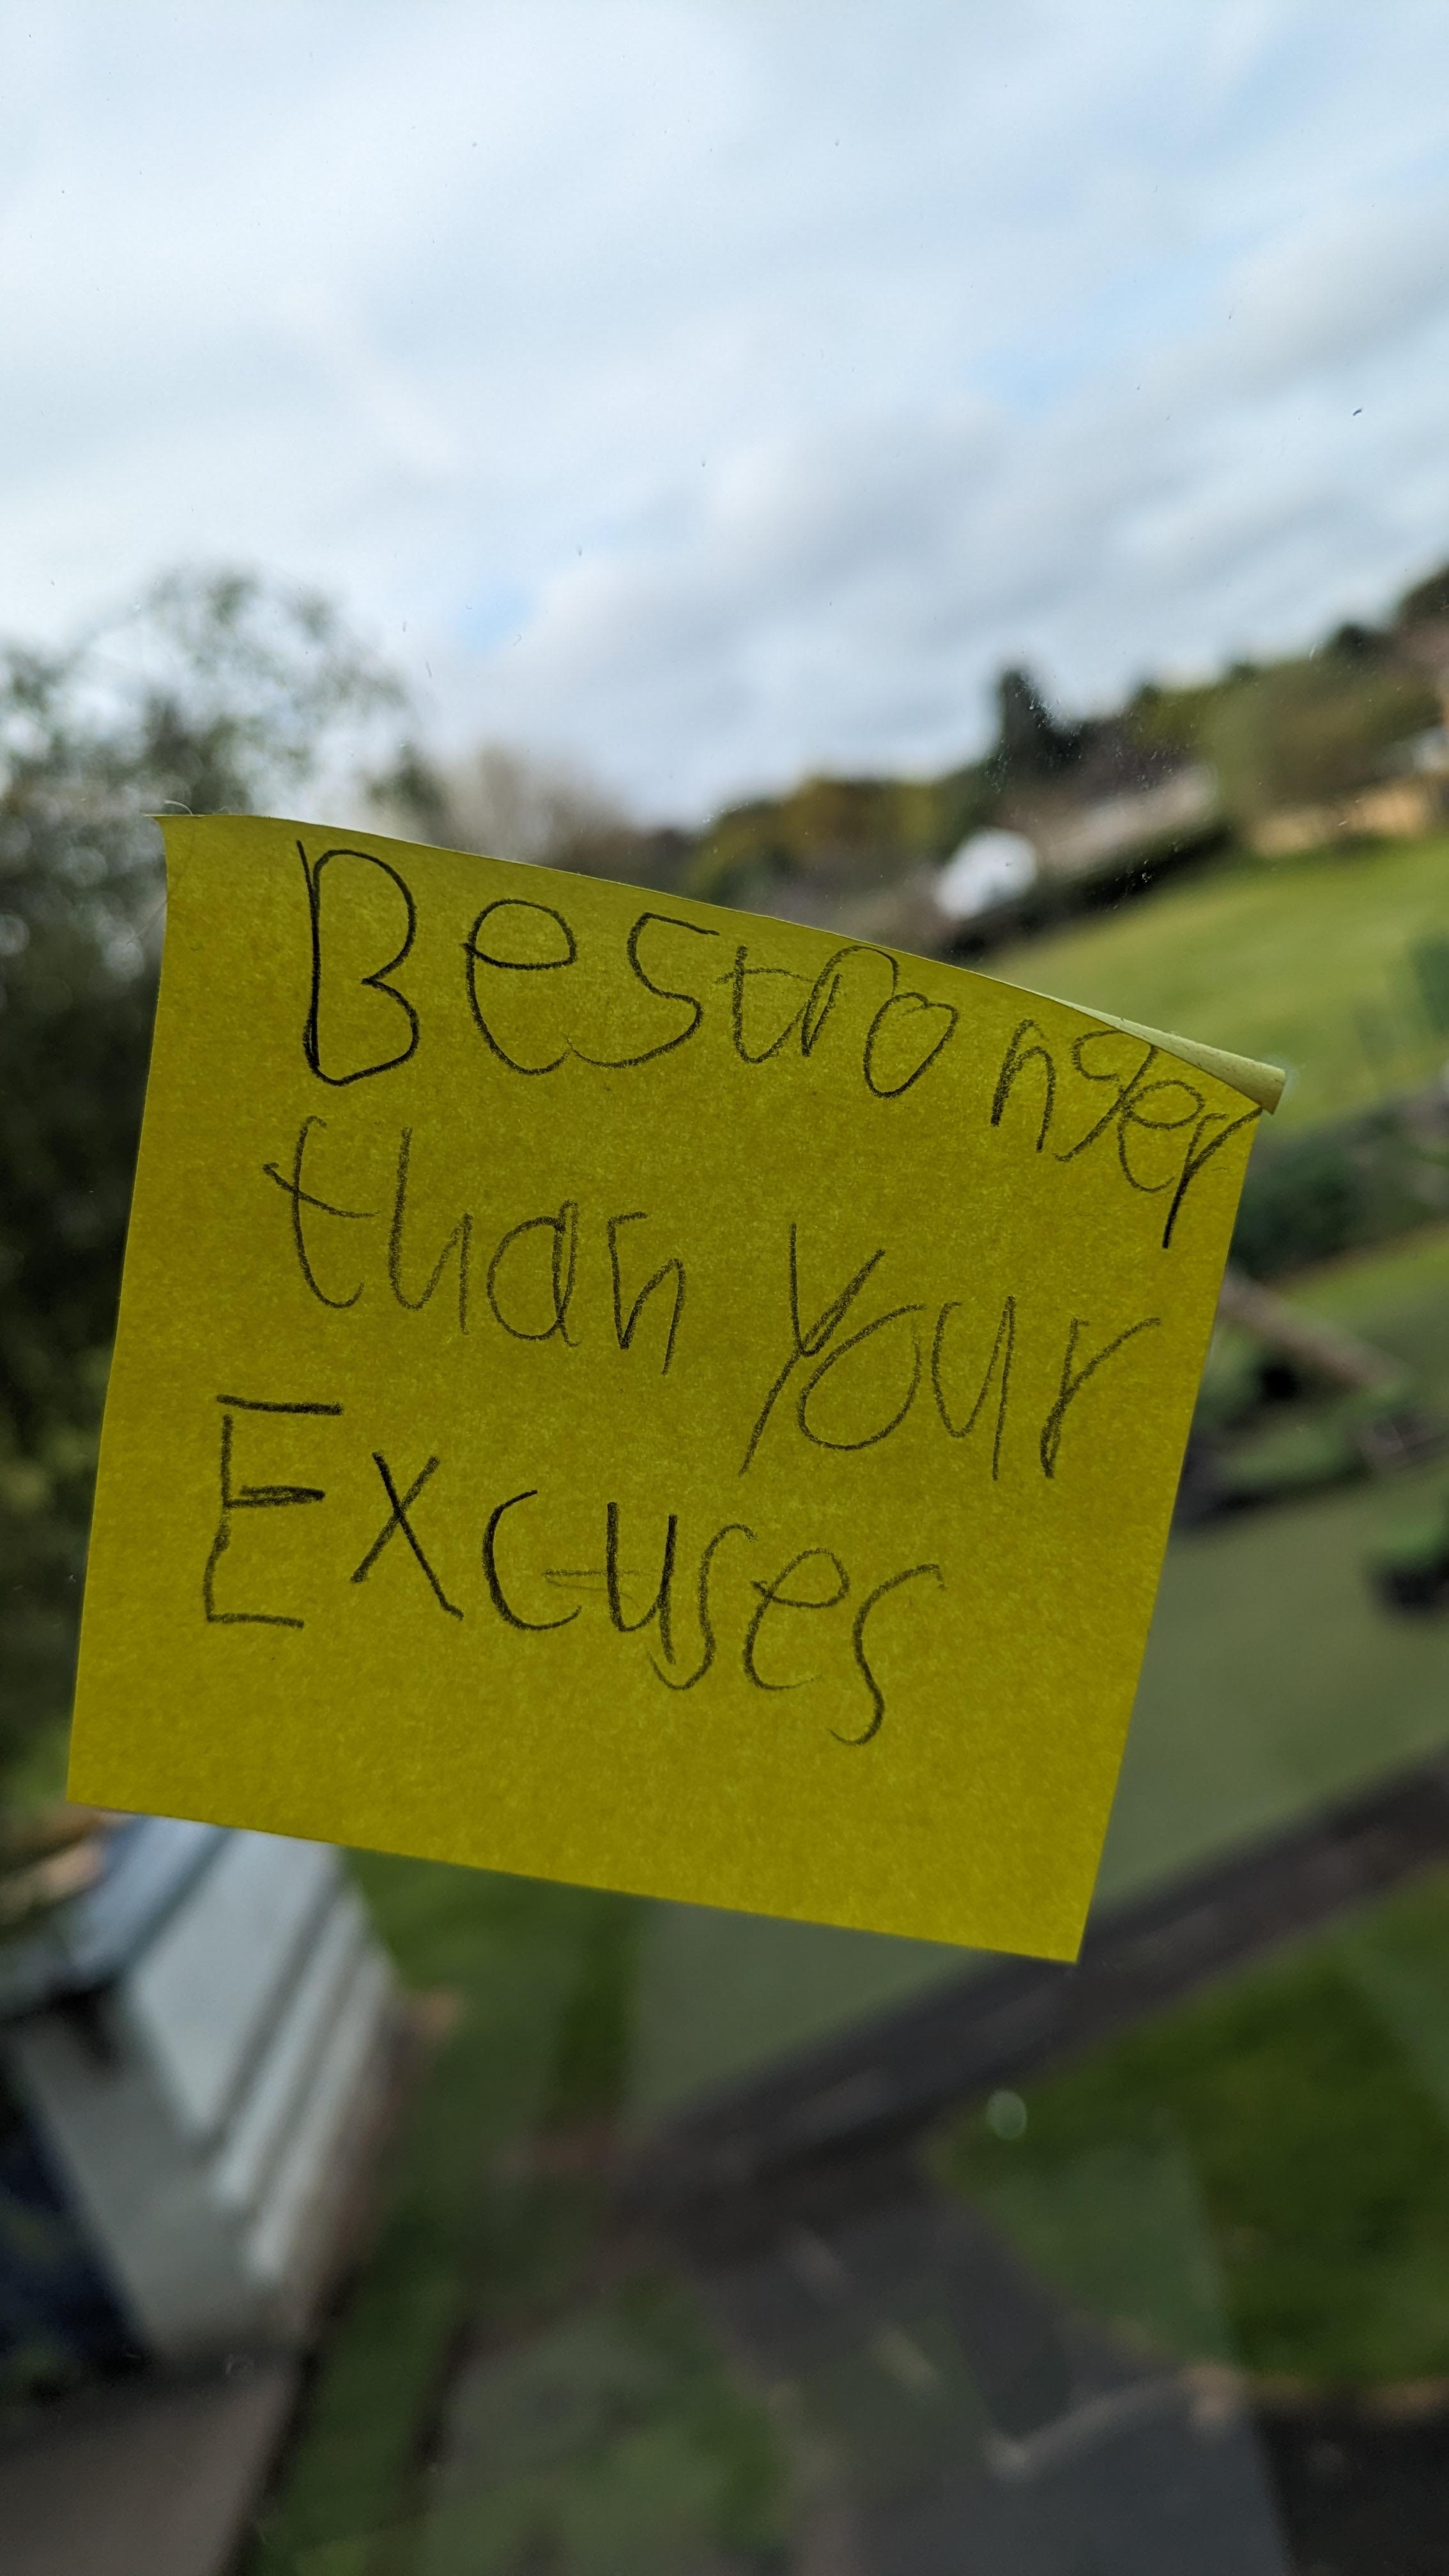 Be stronger
than your
Excuses